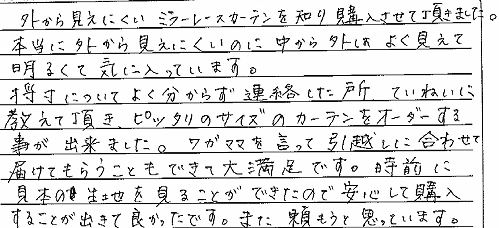 外から見えにくい ミラーレースカーテンを知り購入させて頂きました。
本当に外から見えにくいのに中から外は よく見えて
明るくて 気に入っています。
採寸についてよく分からず 連絡した所 ていねいに
教えて頂き、ピッタリのサイズの カーテンをオーダーする
事が 出来ました。 ワガママを言って 引越しに合わせて
届けてもらうことも できて大満足です。 事前に
見本の 生地を見ることが できたので 安心して購入
することが出きて良かったです。また 頼もうと思っています。